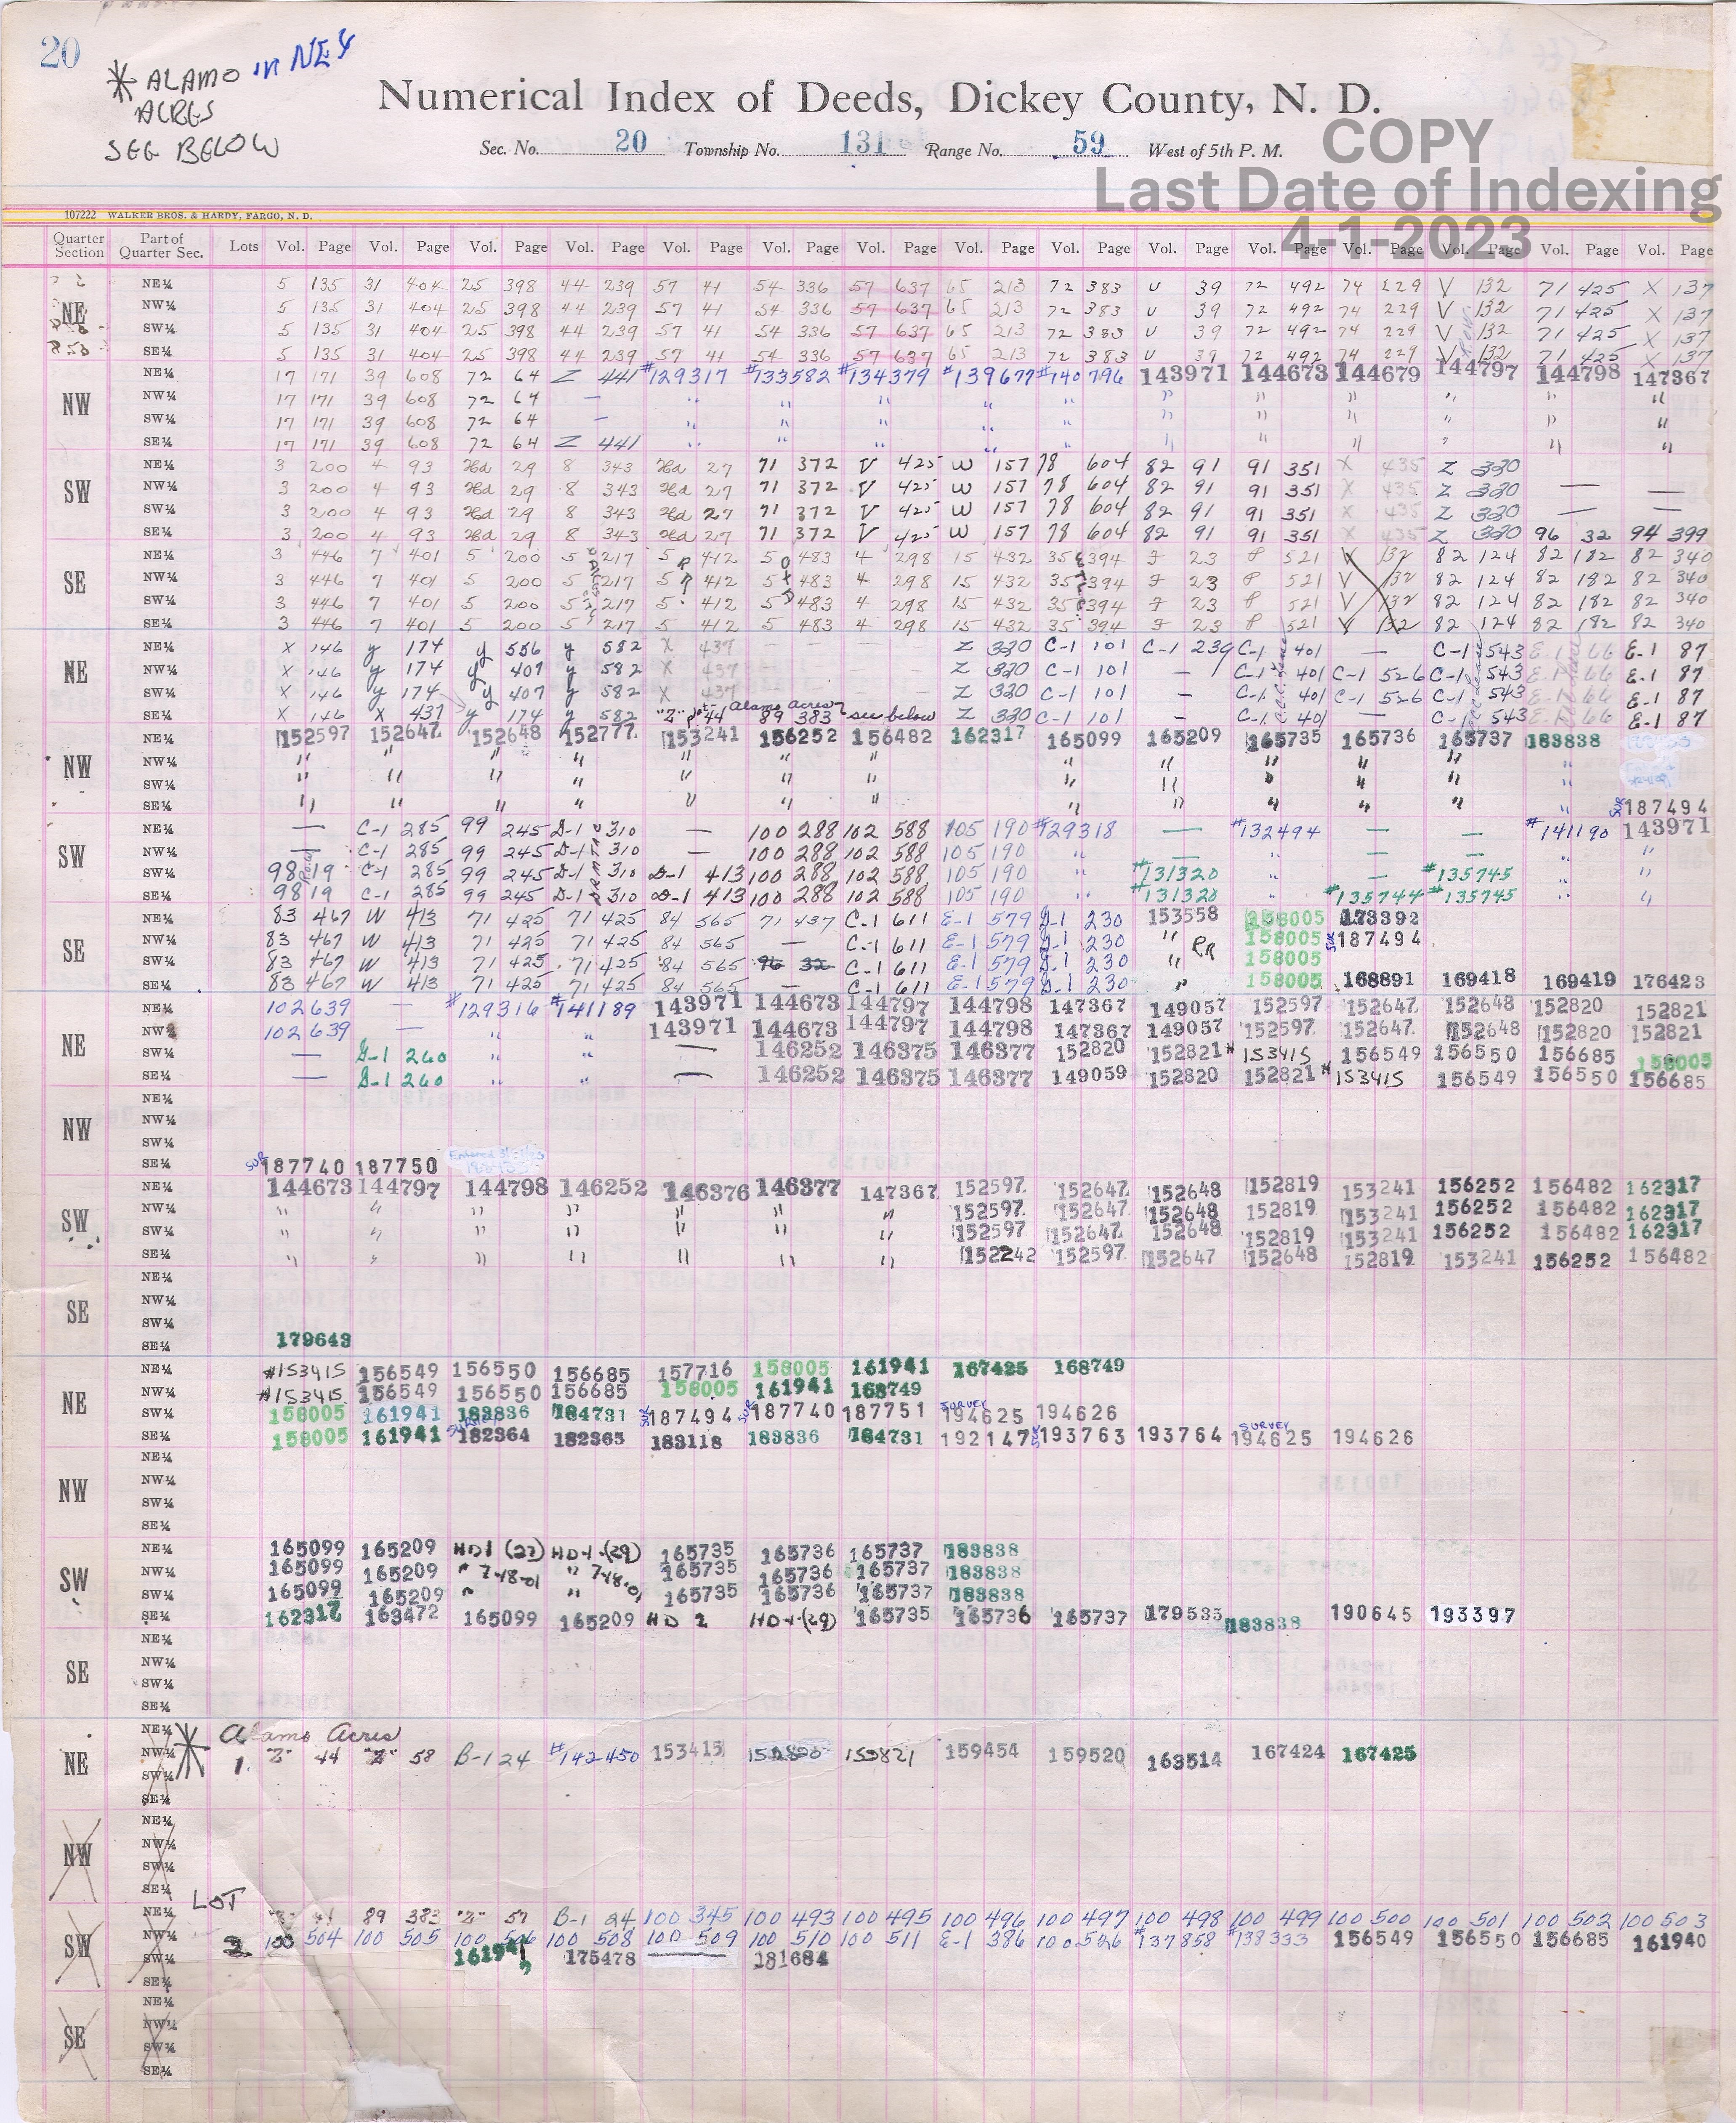 20
* ALAMO in NE4
ACRES
SEE BELOW
Numerical Index of Deeds, Dickey County, N. D.
Sec. No. 20 Township No. 131 Range No. 59 West of 5th P. M.
COPY
Last Date of Indexing
4-1-2023
107222 WALKER BROS. & HARDY, FARGO, N. D.
Quarter Section Part of Quarter Sec. Lots Vol. Page Vol. Page Vol. Page Vol. Page Vol. Page Vol. Page Vol. Page Vol. Page Vol. Page Vol. Page Vol. Page Vol. Page Vol. Page Vol. Page Vol. Page
NE
NE¼ 5 135 31 404 25 398 44 239 57 41 54 336 57 637 65 213 72 383 U 39 72 492 74 229 V 132 71 425 X 137
NW¼ 5 135 31 404 25 398 44 239 57 41 54 336 57 637 65 213 72 383 U 39 72 492 74 229 V 132 71 425 X 137
SW¼ 5 135 31 404 25 398 44 239 57 41 54 336 57 637 65 213 72 383 U 39 72 492 74 229 V 132 71 425 X 137
SE¼ 5 135 31 404 25 398 44 239 57 41 54 336 57 637 65 213 72 383 U 39 72 492 74 229 V 132 71 425 X 137
NW
NE¼ 17 171 39 608 72 64 Z 441 #129317 #133582 #134379 #139677 #140796 143971 144673 144679 144797 144798 147367
NW¼ 17 171 39 608 72 64 — " " " " " " " " " " "
SW¼ 17 171 39 608 72 64 — " " " " " " " " " " "
SE¼ 17 171 39 608 72 64 Z 441 " " " " " " " " " " "
SW
NE¼ 3 200 4 93 Hd 29 8 343 Hd 27 71 372 V 425 W 157 78 604 82 91 91 351 X 435 Z 330
NW¼ 3 200 4 93 Hd 29 8 343 Hd 27 71 372 V 425 W 157 78 604 82 91 91 351 X 435 Z 330 — —
SW¼ 3 200 4 93 Hd 29 8 343 Hd 27 71 372 V 425 W 157 78 604 82 91 91 351 X 435 Z 330 — —
SE¼ 3 200 4 93 Hd 29 8 343 Hd 27 71 372 V 425 W 157 78 604 82 91 91 351 X 435 Z 330 96 32 94 399
SE
NE¼ 3 446 7 401 5 200 5 217 5 412 5 483 4 298 15 432 35 394 F 23 P 521 V 132 82 124 82 182 82 340
NW¼ 3 446 7 401 5 200 5 217 5 412 5 483 4 298 15 432 35 394 F 23 P 521 V 132 82 124 82 182 82 340
SW¼ 3 446 7 401 5 200 5 217 5 412 5 483 4 298 15 432 35 394 F 23 P 521 V 132 82 124 82 182 82 340
SE¼ 3 446 7 401 5 200 5 217 5 412 5 483 4 298 15 432 35 394 F 23 P 521 V 132 82 124 82 182 82 340
NE
NE¼ X 146 y 174 y 556 y 582 X 437 — — Z 330 C-1 101 C-1 239 C-1 401 — C-1 543 E-1 66 E-1 87
NW¼ X 146 y 174 y 407 y 582 X 437 — — Z 330 C-1 101 — C-1 401 C-1 526 C-1 543 E-1 66 E-1 87
SW¼ X 146 y 174 y 407 y 582 X 437 — — Z 330 C-1 101 — C-1 401 C-1 526 C-1 543 E-1 66 E-1 87
SE¼ X 146 X 437 y 174 y 582 "Z" p 44 Alamo Acres 89 383 see below Z 330 C-1 101 — C-1 401 — C-1 543 E-1 66 E-1 87
NW
NE¼ 152597 152647 152648 152777 153241 156252 156482 162317 165099 165209 165735 165736 165737 183838
NW¼ " " " " " " " " " " " " "
SW¼ " " " " " " " " " " " " "
SE¼ " " " " " " " " " " " " " SUR 187494
SW
NE¼ — C-1 285 99 245 D-1 310 — 100 288 102 588 105 190 #129318 — #132494 — — #141190 143971
NW¼ — C-1 285 99 245 D-1 310 — 100 288 102 588 105 190 " — " — — " "
SW¼ 98 19 C-1 285 99 245 D-1 310 D-1 413 100 288 102 588 105 190 " #131320 " — #135745 " "
SE¼ 98 19 C-1 285 99 245 D-1 310 D-1 413 100 288 102 588 105 190 " #131320 #135744 #135745 " "
SE
NE¼ 83 467 W 413 71 425 71 425 84 565 71 437 C-1 611 E-1 579 G-1 230 153558 158005 173392
NW¼ 83 467 W 413 71 425 71 425 84 565 — C-1 611 E-1 579 G-1 230 " RR 158005 SUR 187494
SW¼ 83 467 W 413 71 425 71 425 84 565 96 32 C-1 611 E-1 579 G-1 230 " 158005
SE¼ 83 467 W 413 71 425 71 425 84 565 — C-1 611 E-1 579 G-1 230 " 158005 168891 169418 169419 176423
NE
NE¼ 102 639 — #129316 #141189 143971 144673 144797 144798 147367 149057 152597 152647 152648 152820 152821
NW¼ 102 639 — " " 143971 144673 144797 144798 147367 149057 152597 152647 152648 152820 152821
SW¼ — G-1 260 " " — 146252 146375 146377 152820 152821 #153415 156549 156550 156685 158005
SE¼ — G-1 260 " " — 146252 146375 146377 149059 152820 152821 #153415 156549 156550 156685
NW
NE¼
NW¼
SW¼
SE¼ SUR 187740 187750
SW
NE¼ 144673 144797 144798 146252 146376 146377 147367 152597 152647 152648 152819 153241 156252 156482 162317
NW¼ " " " " " " " 152597 152647 152648 152819 153241 156252 156482 162317
SW¼ " " " " " " " 152597 152647 152648 152819 153241 156252 156482 162317
SE¼ " " " " " " " 152242 152597 152647 152648 152819 153241 156252 156482
SE
NE¼
NW¼
SW¼
SE¼ 179643
NE
NE¼ #153415 156549 156550 156685 157716 158005 161941 167425 168749
NW¼ #153415 156549 156550 156685 158005 161941 168749
SW¼ 158005 161941 183836 184731 SUR 187494 SUR 187740 187751 SURVEY 194625 194626
SE¼ 158005 161941 SURVEY 182364 182365 183118 183836 184731 192147 SUR 193763 193764 SURVEY 194625 194626
NW
NE¼
NW¼
SW¼
SE¼
SW
NE¼ 165099 165209 HD1 (27) HD-1 (29) 165735 165736 165737 183838
NW¼ 165099 165209 " 7-18-01 " 7-18-01 165735 165736 165737 183838
SW¼ 165099 165209 " " 165735 165736 165737 183838
SE¼ 162317 163472 165099 165209 HD 2 HD-1 (29) 165735 165736 165737 179535 183838 190645 193397
SE
NE¼
NW¼
SW¼
SE¼
NE
NE¼ * Alamo Acres
NW¼ 1. "Z" 44 "Z" 58 B-1 24 #142450 153415 152820 152821 159454 159520 163514 167424 167425
SW¼
SE¼
NW
NE¼
NW¼
SW¼
SE¼ LOT
SW
NE¼ "Z" 44 89 383 "Z" 57 B-1 24 100 345 100 493 100 495 100 496 100 497 100 498 100 499 100 500 100 501 100 502 100 503
NW¼ 2. 100 504 100 505 100 506 100 508 100 509 100 510 100 511 E-1 386 100 526 #137858 #138333 156549 156550 156685 161940
SW¼ 161941 175478 — 181684
SE¼
SE
NE¼
NW¼
SW¼
SE¼